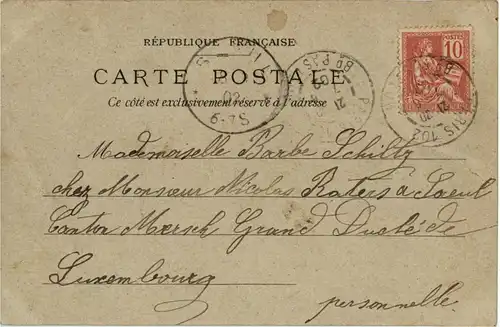 RÉPUBLIQUE FRANÇAISE
CARTE POSTALE
Ce côté est exclusivement réservé à l'adresse
10
POSTES
02
6-7S
PARIS
Mademoiselle Barbe Schiltz
chez Monsieur Nicolas Raters à Saeul
Canton Mersch Grand Duché de
Luxembourg
personnelle.